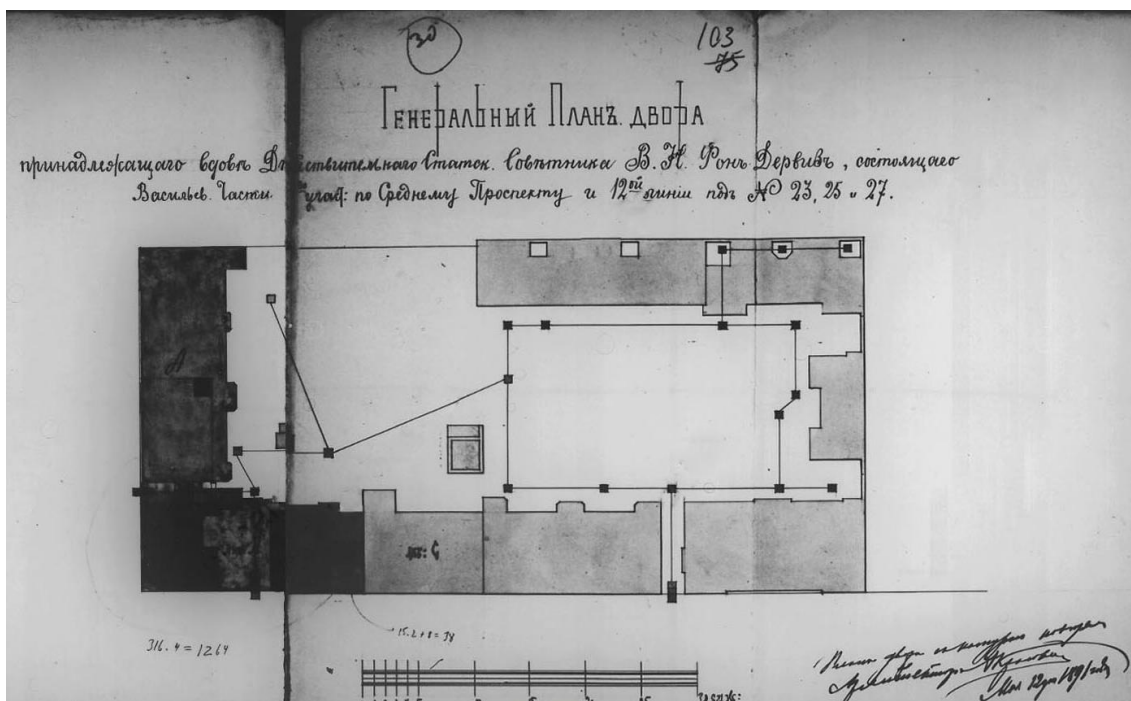 30
103
75
Генеральный Планъ двора
принадлежащаго вдовѣ Дѣйствительнаго Статск. Совѣтника В. Н. Фонъ Дервизъ, состоящаго
Васильев. Части участ: по Среднему Проспекту и 12ой линіи подъ № 23, 25 и 27.
А
лит: С
316.4=1264
15.2+8=38
Архитекторъ